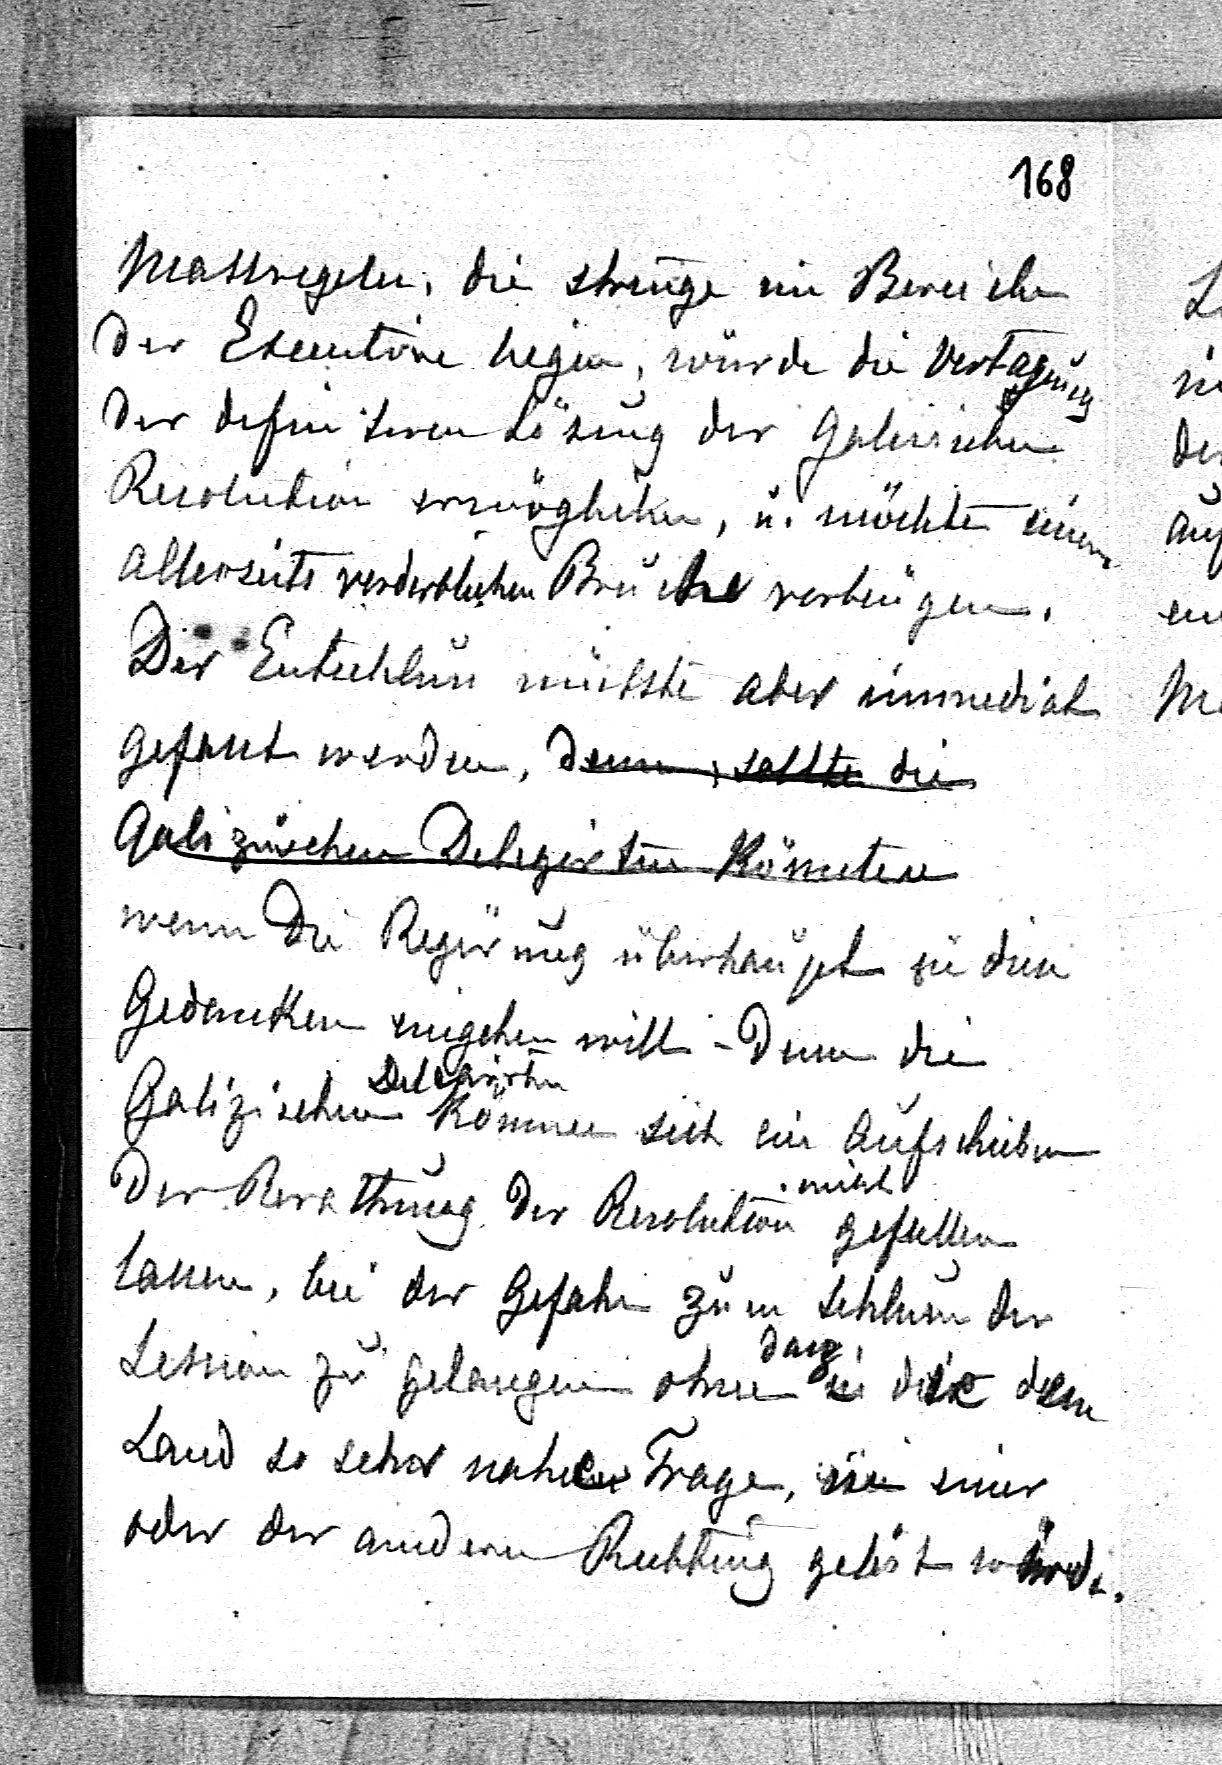 168
Massregeln, die strenge im Bereiche
der Executive liegen, würde die Vertagung
der definitiven Lösung der galizischen
Resolution ermöglichen, u. möchte einem
allerseits verderblichen Bruche vorbeugen.
Der Entschluss müsste aber immediat
gefasst werden, denn, sollte die
Galizischen Delegirten könnten
wenn die Regirung überhaupt in diese
Gedanken eingehen will - Denn die
Delegirten
Galizischen können sich ein Aufschieben
nicht
der Berathung der Resolution gefallen
lassen, bei der Gefahr zum Schluss der
dass
Session zu gelangen ohne die dem
Land so sehr nahe Frage, in einer
oder der anderen Richtung gelöst würde.